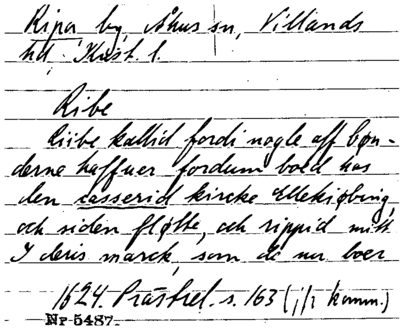 Ripa by, Åhus sn, Villands
hd. Krist. l.
Ribe
Riibe kallid fordi nogle aff bøn-
derne haffuer fordum boed hos
den casserid kircke Ellekiøbing,
och siden fløtte, och rippid mitt
I deris marck, som de nu boer
1624. Prästrel. s. 163 (j/r komm.)
Nr 5487.